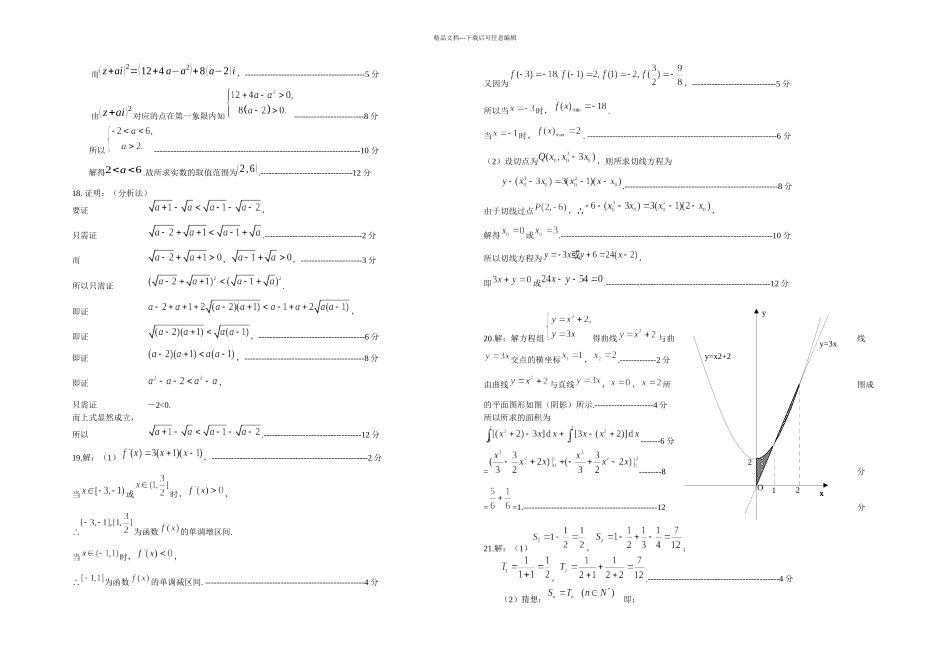 精品文档---下载后可任意编辑
而(z+ai)²=(12+4a−a²)+8(a−2)i，--------------------------------------------5 分
由(z+ai)²对应的点在第一象限内知{12+4a−a²>0, 8(a−2)>0. --------------------------8 分
所以{−2<a<6, a>2. ----------------------------------------------------------------------------10 分
解得2<a<6.故所求实数的取值范围为(2,6).----------------------------------12 分
18. 证明：（分析法）
要证 √a+1−√a<√a−1−√a−2，
只需证 √a−2+√a+1<√a−1+√a.------------------------------------2 分
而 √a−2+√a+1>0，√a−1+√a>0，-----------------------3 分
所以只需证 (√a−2+√a+1)²<(√a−1+√a)².
即证 a−2+a+1+2√(a−2)(a+1)<a−1+a+2√a(a−1)，
即证 √(a−2)(a+1)<√a(a−1)，----------------------------------------6 分
即证 (a−2)(a+1)<a(a−1)，--------------------------------------------8 分
即证 a²−a−2<a²−a，
只需证 －2<0.
而上式显然成立，
所以 √a+1−√a<√a−1−√a−2.------------------------------------12 分
19.解：（1） f′(x)=3(x+1)(x−1)，----------------------------------------------------------2 分
当x∈[−3,−1)或x∈(1,3/2]时，f′(x)>0，
∴[−3,−1],[1,3/2]为函数f(x)的单调增区间.
当x∈(−1,1)时，f′(x)<0，
∴[−1,1]为函数f(x)的单调减区间. -----------------------------------------------------------4 分
又因为f(−3)=−18, f(−1)=2, f(1)=−2, f(3/2)=−9/8，-------------------------------5 分
所以当x=−3时，f(x)min=−18.
当x=−1时，f(x)max=2. ----------------------------------------------------------------------6 分
（2）设切点为Q(x₀,x₀³−3x₀)，则所求切线方程为
y−(x₀³−3x₀)=3(x₀²−1)(x−x₀).---------------------------------------------------------8 分
由于切线过点P(2,−6)，∴−6−(x₀³−3x₀)=3(x₀²−1)(2−x₀)，
解得x₀=0或x₀=3.------------------------------------------------------------------------------10 分
所以切线方程为y=−3x或y+6=24(x−2)，
即3x+y=0或24x−y−54=0.-------------------------------------------------------------12 分
20.解：解方程组{y=x²+2, y=3x 得曲线y=x²+2与曲线
y=3x交点的横坐标x₁=1，x₂=2.-------------2 分
由曲线y=x²+2与直线y=3x，x=0，x=2所围成
的平面图形如图（阴影）所示.---------------------4 分
所以所求的面积为
∫[(x²+2)−3x]dx+∫[3x−(x²+2)]dx-------6 分
=(x³/3−3/2x²+2x)|+(−x³/3+3/2x²−2x)|--------8 分
=5/6+1/6=1.-------------------------------------------------12 分
y
y=3x
y=x2+2
2
O
1
2
x
21.解：（1）S₁=1−1/2=1/2，S₂=1−1/2+1/3−1/4=7/12；
T₁=1/(1+1)=1/2，T₂=1/(2+1)+1/(2+2)=7/12.------------------------------------------------4 分
（2）猜想：Sₙ=Tₙ (n∈N*) 即：